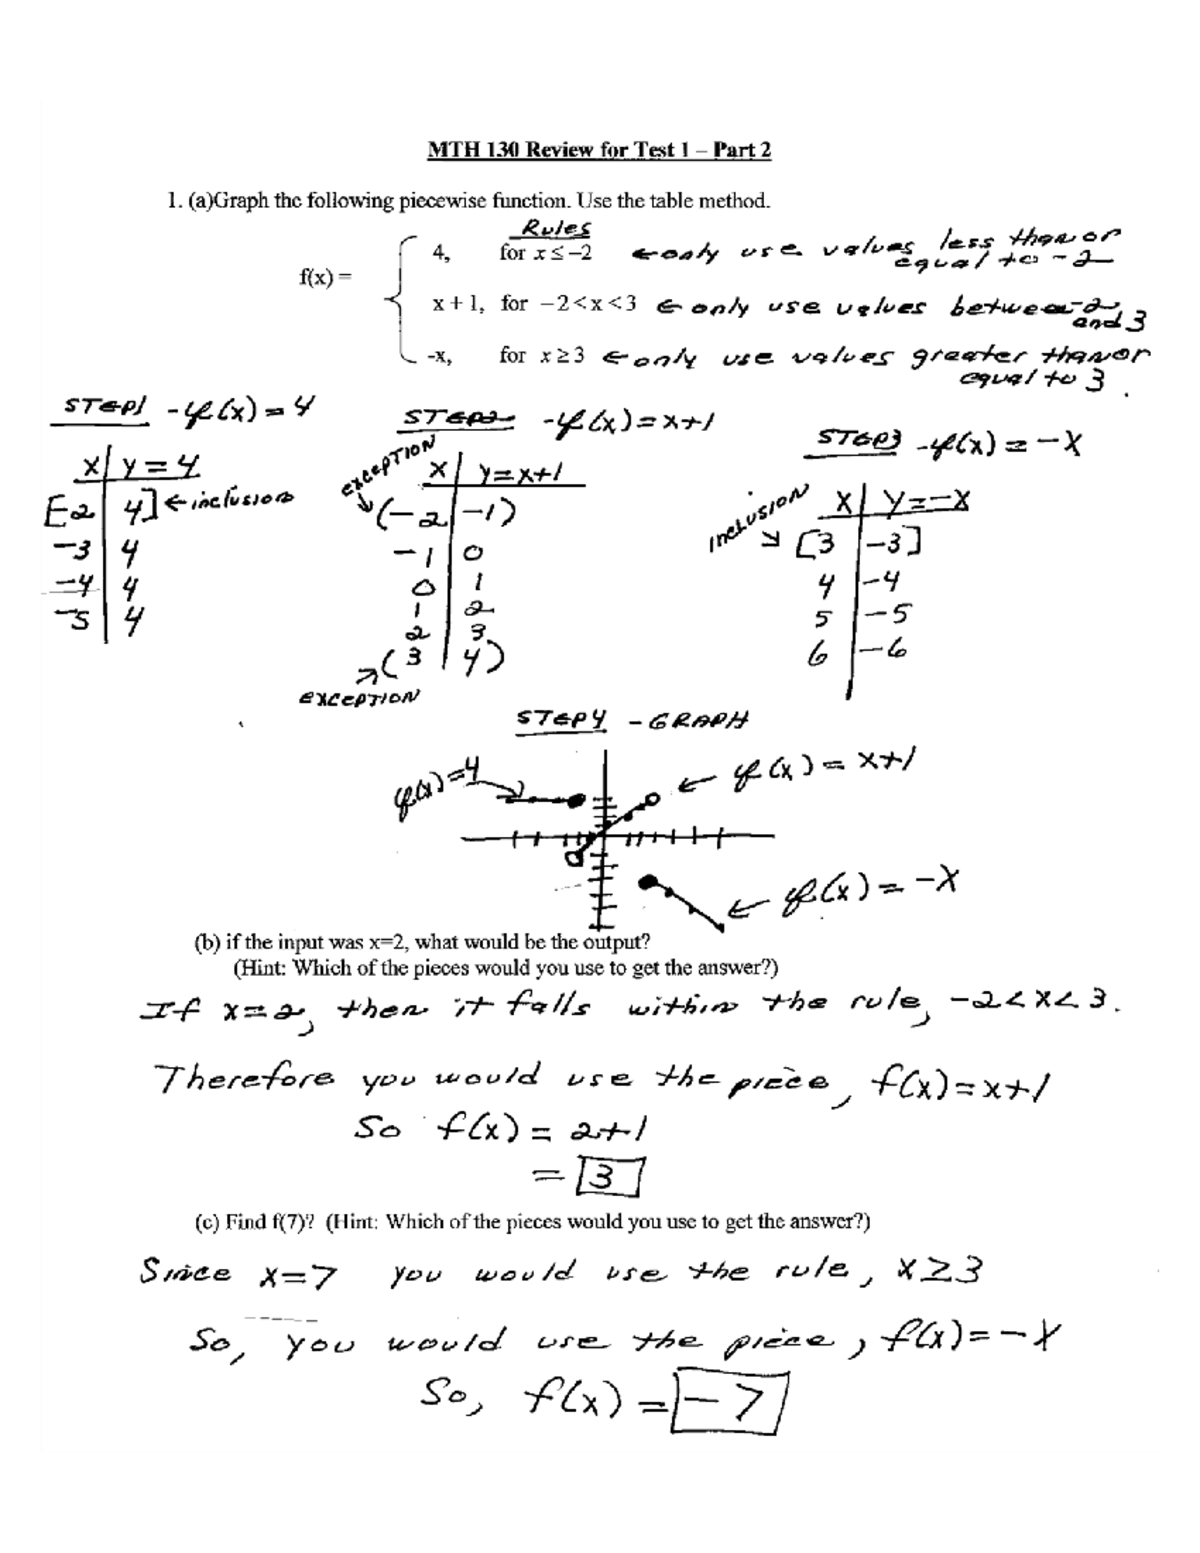 MTH 130 Review for Test 1 – Part 2
1. (a)Graph the following piecewise function. Use the table method.
Rules
f(x) =
4, for x ≤ −2 ← only use values less than or equal to -2
x + 1, for −2 < x < 3 ← only use values between -2 and 3
-x, for x ≥ 3 ← only use values greater than or equal to 3.
STEP1 - f(x) = 4
x | y = 4
[-2 | 4] ← inclusion
-3 | 4
-4 | 4
-5 | 4
STEP2 - f(x) = x+1
EXCEPTION
x | y = x+1
(-2 | -1)
-1 | 0
0 | 1
1 | 2
2 | 3
(3 | 4)
EXCEPTION
STEP3 - f(x) = -x
INCLUSION
x | y = -x
[3 | -3]
4 | -4
5 | -5
6 | -6
STEP4 - GRAPH
f(x) = 4
← f(x) = x+1
← f(x) = -x
(b) if the input was x=2, what would be the output?
(Hint: Which of the pieces would you use to get the answer?)
If x=2, then it falls within the rule, -2<x<3.
Therefore you would use the piece, f(x)=x+1
So f(x) = 2+1
= 3
(c) Find f(7)? (Hint: Which of the pieces would you use to get the answer?)
Since x=7 you would use the rule, x≥3
So, you would use the piece, f(x)=-x
So, f(x) = -7